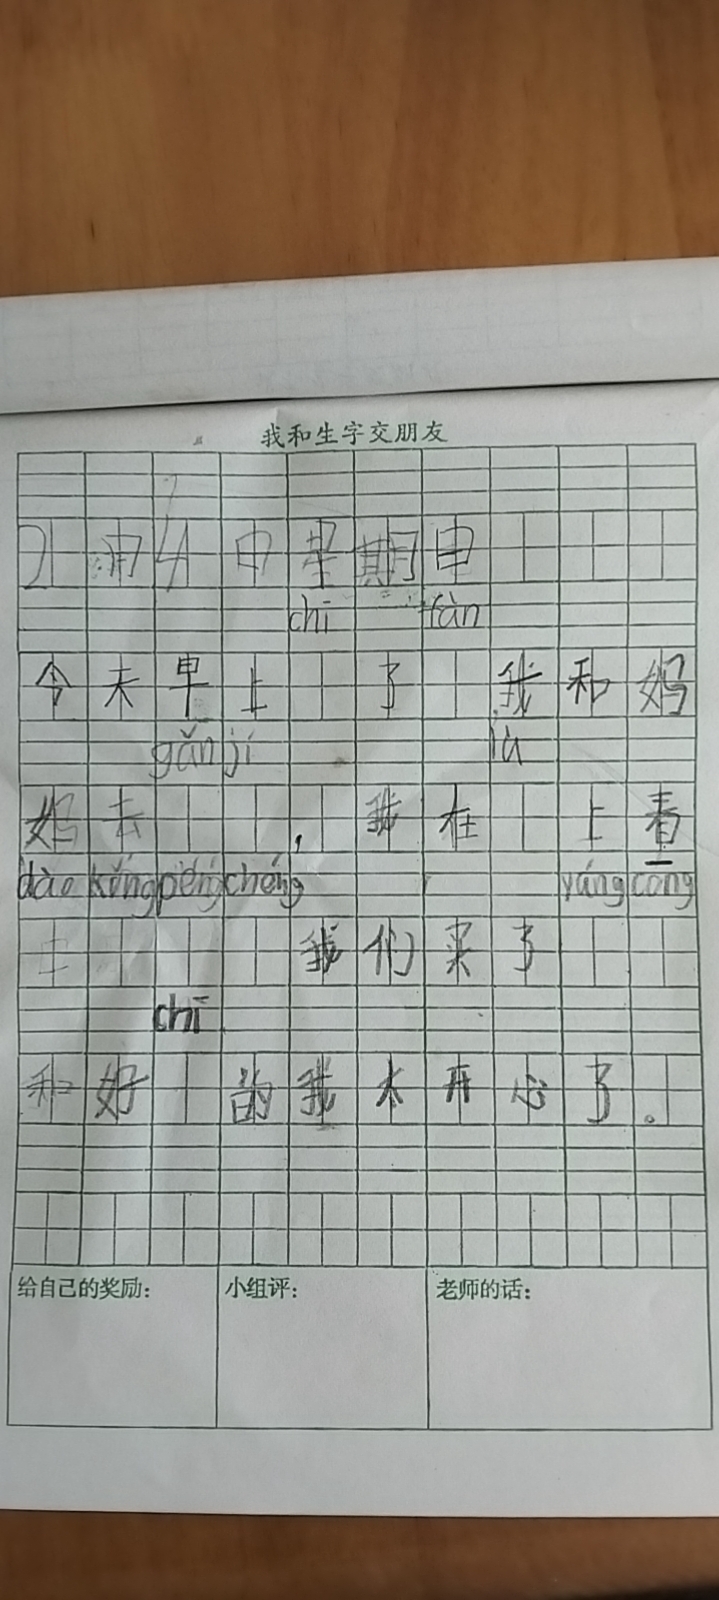 我和生字交朋友
2 月 4 日 星 期 日
chī fàn
今 天 早 上 了 我 和 妈
gǎn jí lù
妈 去 , 我 在 上 看
dào kǒng péng chéng yáng cōng
我 们 买 了
chī
和 好 的 我 太 开 心 了 。
给自己的奖励:
小组评:
老师的话: